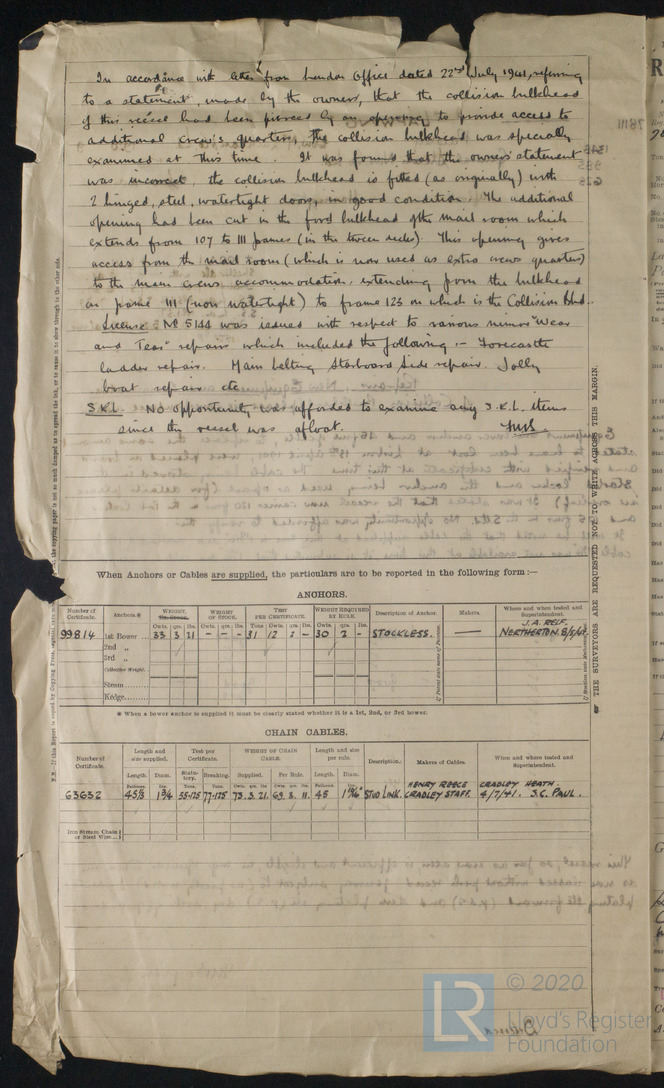 In accordance with letter from London Office dated 22nd July 1941, referring
to a statement, made by the owners, that the collision bulkhead
of this vessel had been pierced by an opening to provide access to
additional crew's quarters, the collision bulkhead was specially
examined at this time. It was found that the owners' statement
was incorrect, the collision bulkhead is fitted (as originally) with
2 hinged, steel, watertight doors, in good condition. The additional
opening had been cut in the ford bulkhead of the mail room which
extends from 107 to 111 frames (in the tween decks). This opening gives
access from the mail room (which is now used as extra crews quarters)
to the main crews accommodation extending from the bulkhead
on frame 111 (now watertight) to frame 123 on which is the Collision Blkd.
License No 5144 was issued with respect to various minor "Wear
and Tear" repairs which included the following :- Forecastle
ladder repair. Main belting Starboard Side repair. Jolly
boat repair etc
S.K.L. No opportunity was afforded to examine any S.K.L. items
since the vessel was afloat.
When Anchors or Cables are supplied, the particulars are to be reported in the following form :—
ANCHORS.
Number of Certificate. Anchors.* WEIGHT. WEIGHT OF STOCK. TEST PER CERTIFICATE. WEIGHT REQUIRED BY RULE. Description of Anchor. Makers. When and where tested and Superintendent.
Cwts. qrs. lbs. Cwts. qrs. lbs. Tons Cwts. qrs. lbs. Cwts. qrs. lbs.
J.A. RELF.
99814 1st Bower 33 3 21 - - - 31 12 2 - 30 2 - STOCKLESS. — NETHERTON.
2nd „
3rd „
Collective Weight.
Stream
Kedge
* When a bower anchor is supplied it must be clearly stated whether it is a 1st, 2nd, or 3rd bower.
CHAIN CABLES.
Number of Certificate. Length and size supplied. Test per Certificate. WEIGHT OF CHAIN CABLE. Length and size per rule. Description. Makers of Cables. When and where tested and Superintendent.
Length. Diam. Statutory. Breaking. Supplied. Per Rule. Length. Diam.
HENRY REECE CRADLEY HEATH
63632 45/3 1 3/4 55·125 77·175 73. 3. 21. 69. 3. 11. 45 STUD LINK. CRADLEY STAFF. 4/7/41. S.C. PAUL.
Iron Stream Chain or Steel Wire
THE SURVEYORS ARE REQUESTED NOT TO WRITE ACROSS THIS MARGIN.
© 2020
LR
Lloyd's Register
Foundation